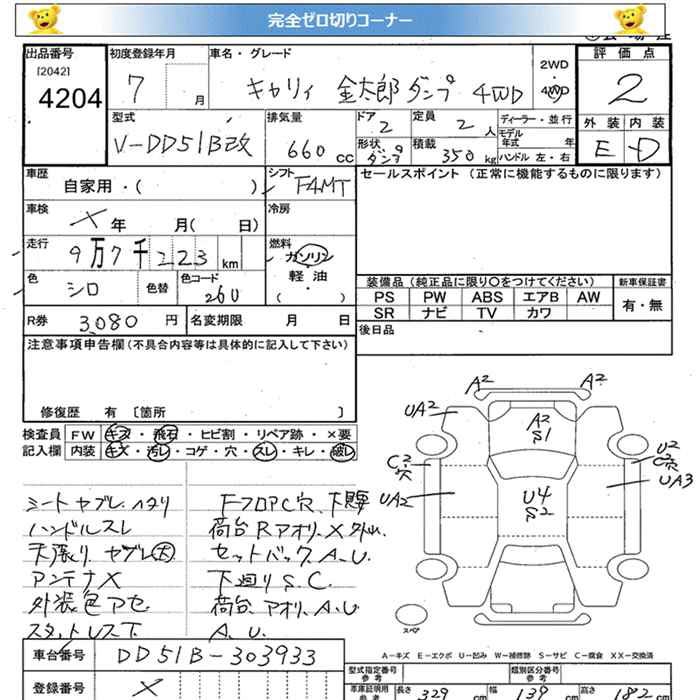 完全ゼロ切りコーナー
出品番号
[2042]
4204
初度登録年月
7
月
車名・グレード
キャリィ 金太郎ダンプ 4WD
2WD
4WD
評価点
2
外装 内装
E D
型式
V-DD51B改
排気量
660 cc
ドア
2
定員
2 人
形状
ダンプ
積載
350 kg
ディーラー・並行
モデル年式 年
ハンドル 左・右
車歴
自家用・( )
シフト
FAMT
セールスポイント (正常に機能するものに限ります)
車検
X 年 月( 日)
冷房
走行
9万7千223 km
燃料
ガソリン
軽・油
( ・ )
色
シロ
色替
色コード
26U
装備品 (純正品に限り○をつけてください)
新車保証書
PS PW ABS エアB AW
SR ナビ TV カワ
有・無
R券 3,080 円
名変期限 月 日
後日品
注意事項申告欄 (不具合内容等は具体的に記入して下さい)
修復歴 有 [箇所 ]
検査員
記入欄
FW キズ・飛石・ヒビ割・リペア跡・×要
内装 キズ・汚レ・コゲ・穴・スレ・キレ・破レ
シートヤブレ、ハタリ
ハンドルスレ
天張り ヤブレ大
アンテナX
外装色アセ
スタットレス下
FフロアC穴、下廻要
荷台Rアオリ、X外山
セットバックA.U.
下廻りS.C.
荷台アオリ、A.U
A.U.
A2
A2
UA2
A2
S1
C2
穴
U2
C2
穴
UA2
UA3
U4
S2
スペア
A-キズ E-エクボ U-凹み W-補修跡 S-サビ C-腐食 XX-交換済
車台番号
DD51B-303933
登録番号
X
型式指定番号
参考
類別区分番号
参考
車庫証明用
参考
長さ 329 cm
幅 139 cm
高さ 182 cm